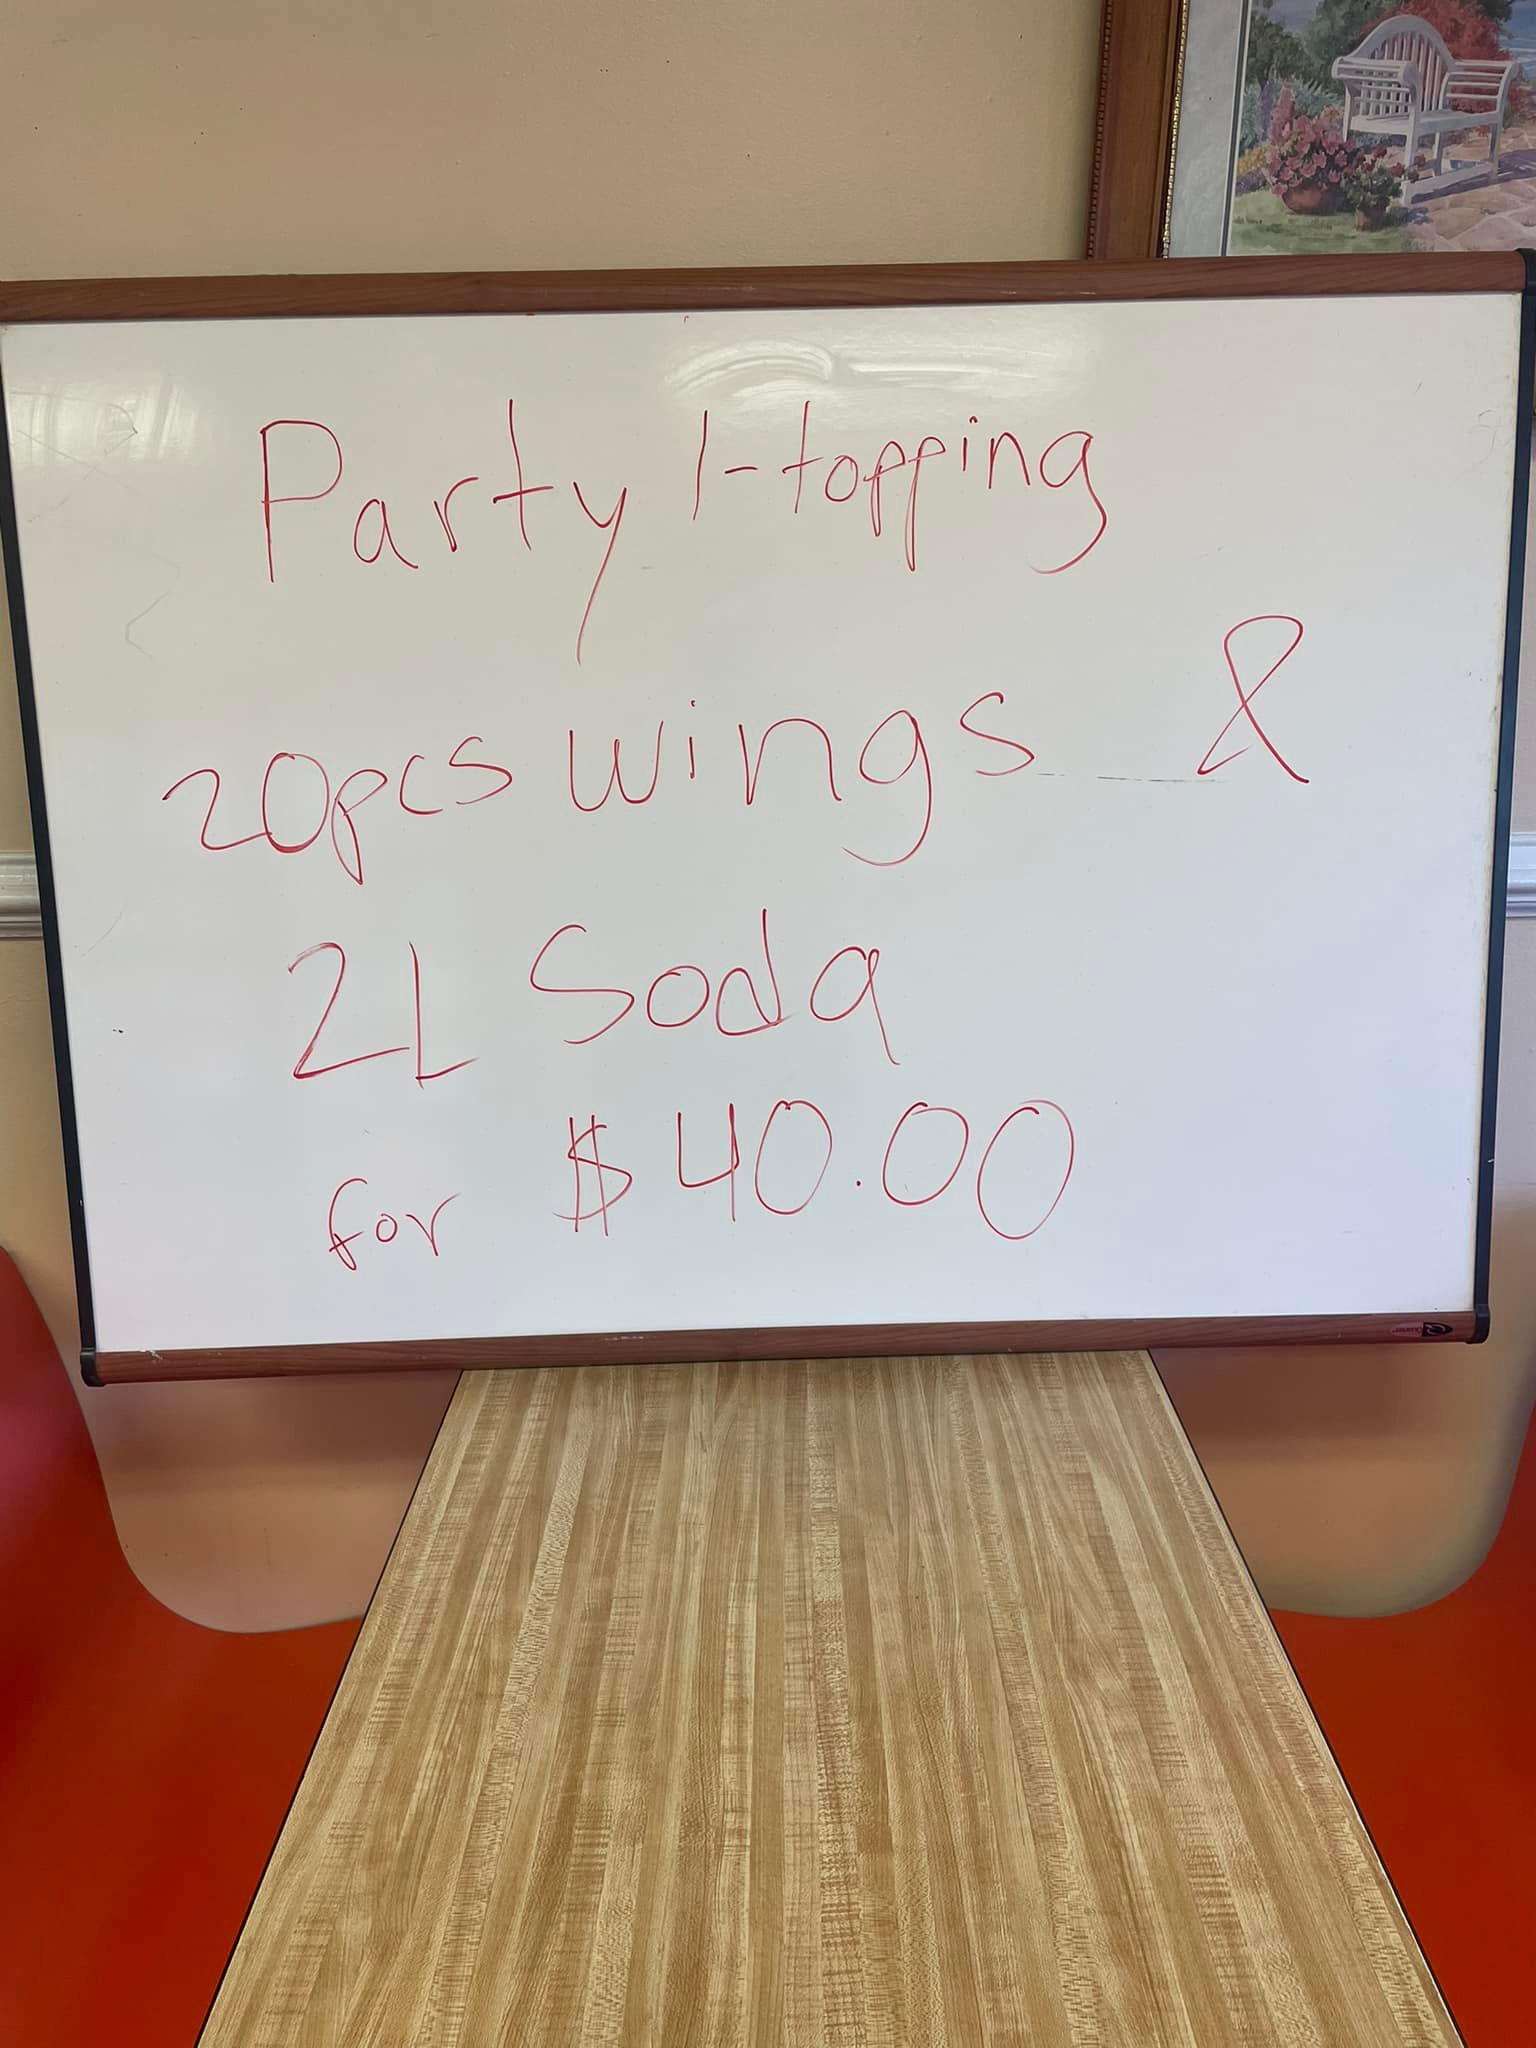 Party 1-topping
20pcs wings &
2L Soda
for $40.00
Quartet